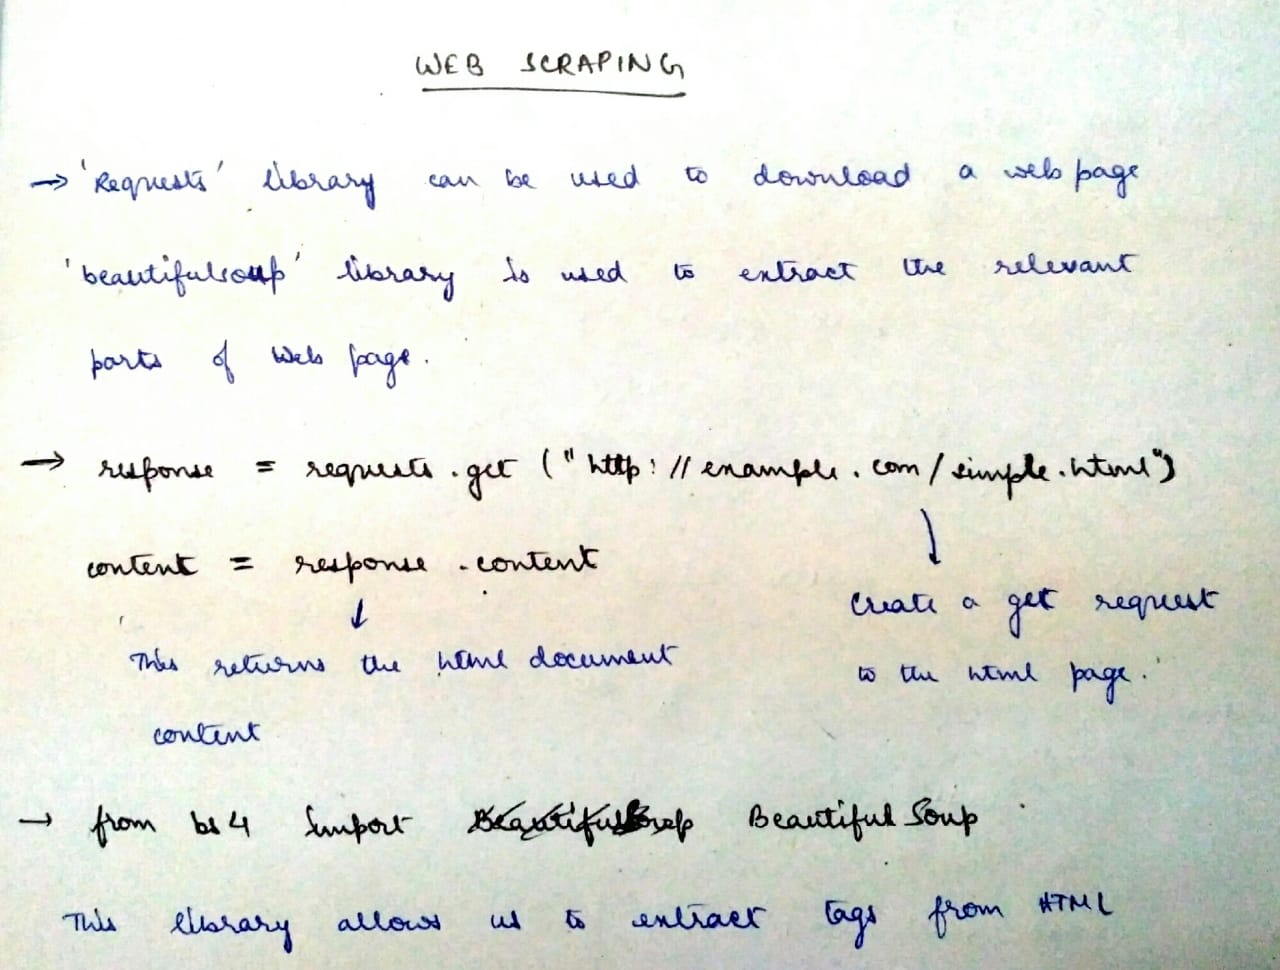 WEB SCRAPING
→ 'Requests' library can be used to download a web page
'beautifulsoup' library is used to extract the relevant
parts of web page.
→ response = requests.get("http://example.com/simple.html")
content = response.content
↓
create a get request
↓
This returns the html document
to the html page.
content
→ from bs4 import BeautifulSoup BeautifulSoup
This library allows us to extract tags from HTML